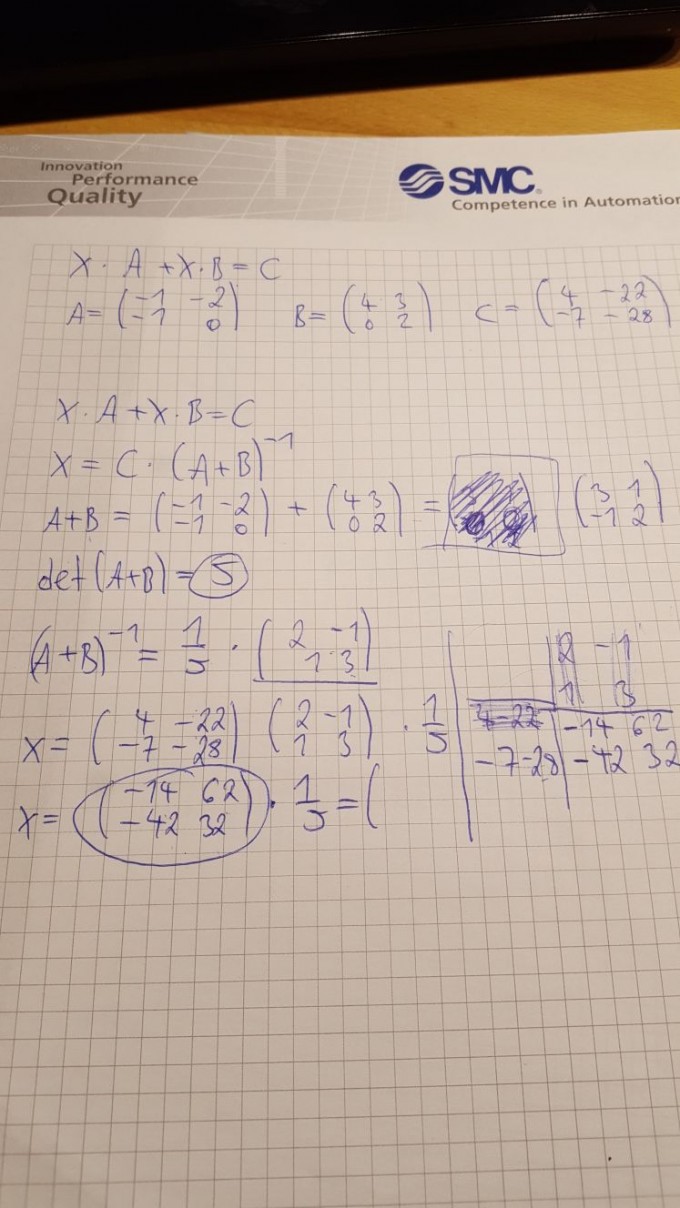 Innovation
Performance
Quality
SMC
Competence in Automation
X · A + X · B = C
A = (-1 -2
-1 0) B = (4 3
0 2) C = (4 -22
-7 -28)
X · A + X · B = C
X = C · (A+B)^-1
A+B = (-1 -2
-1 0) + (4 3
0 2) = (3 1
-1 2)
det(A+B) = 5
(A+B)^-1 = 1/5 · (2 -1
1 3)
X = (4 -22
-7 -28) (2 -1
1 3) · 1/5
X = (-14 62
-42 32) · 1/5 = (
2 -1
1 3
4 -22 -14 62
-7 -28 -42 32